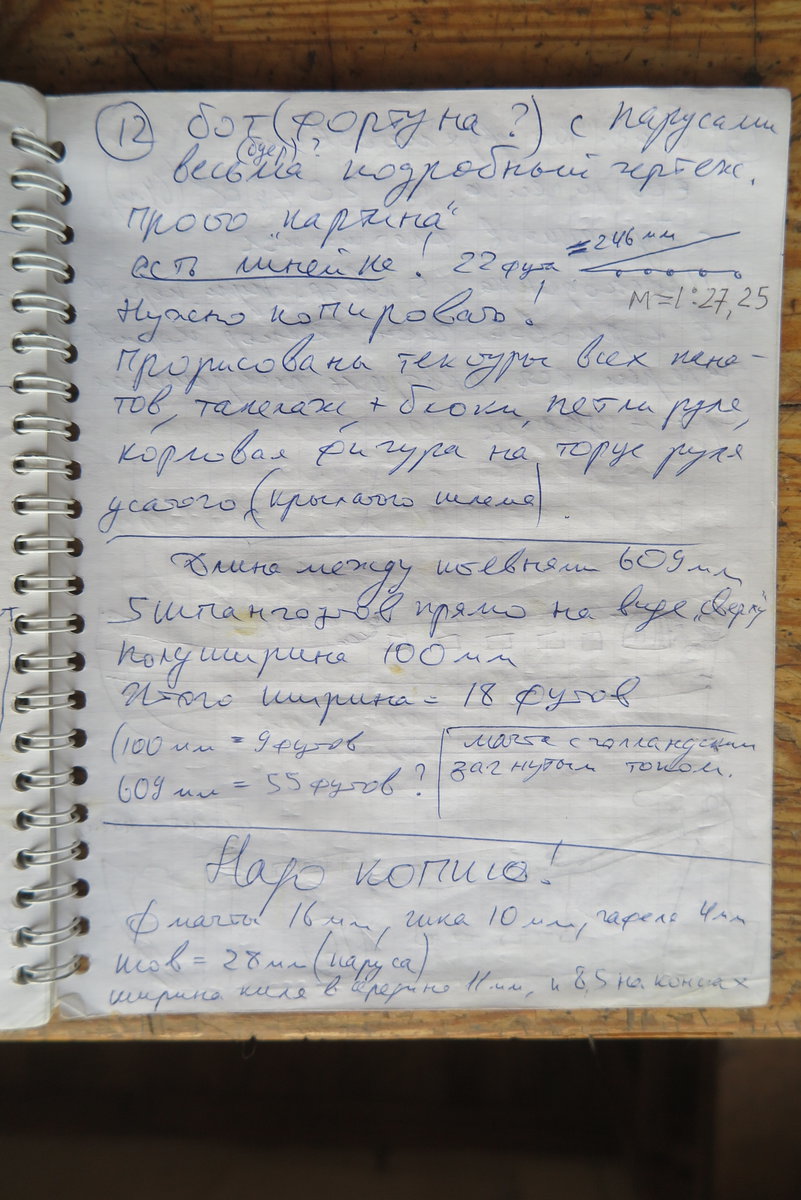 12 бот (фортуна ?) с парусами
(буер) ?
весьма подробный чертеж.
просто „картина“
есть линейка! 22 фута = 246 мм
М=1:27,25
Нужно копировать!
Прорисованы текстуры всех
тов, такелаж + блоки, петли руля,
кормовая фигура на торце руля
усатого (крылатого шлема).
Длина между штевнями 609 мм
5 шпангоутов прямо на виде „сверху“
полуширина 100 мм
Итого ширина = 18 футов
(100 мм = 9 футов
609 мм = 55 футов ?
мачта с голландским
загнутым топом.
Надо копию!
ф мачты 16 мм, гика 10 мм, гафеля 4 мм
шов = 28 мм (паруса)
ширина киля в середине 11 мм, и 8,5 на концах